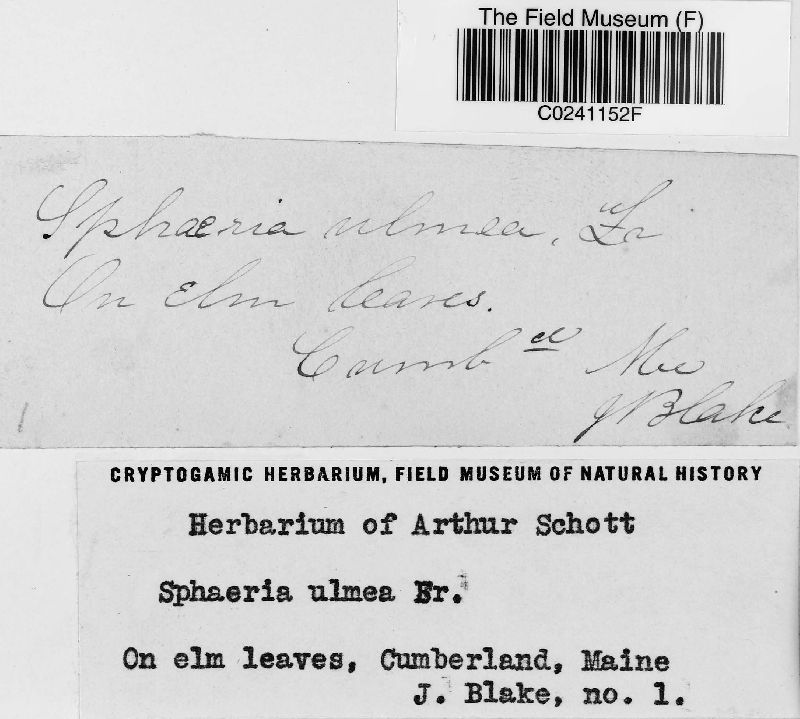 The Field Museum (F)
C0241152F
Sphaeria ulmea, Fr
On elm leaves.
Cumb Me
J Blake
1
CRYPTOGAMIC HERBARIUM, FIELD MUSEUM OF NATURAL HISTORY
Herbarium of Arthur Schott
Sphaeria ulmea Fr.
On elm leaves, Cumberland, Maine
J. Blake, no. 1.